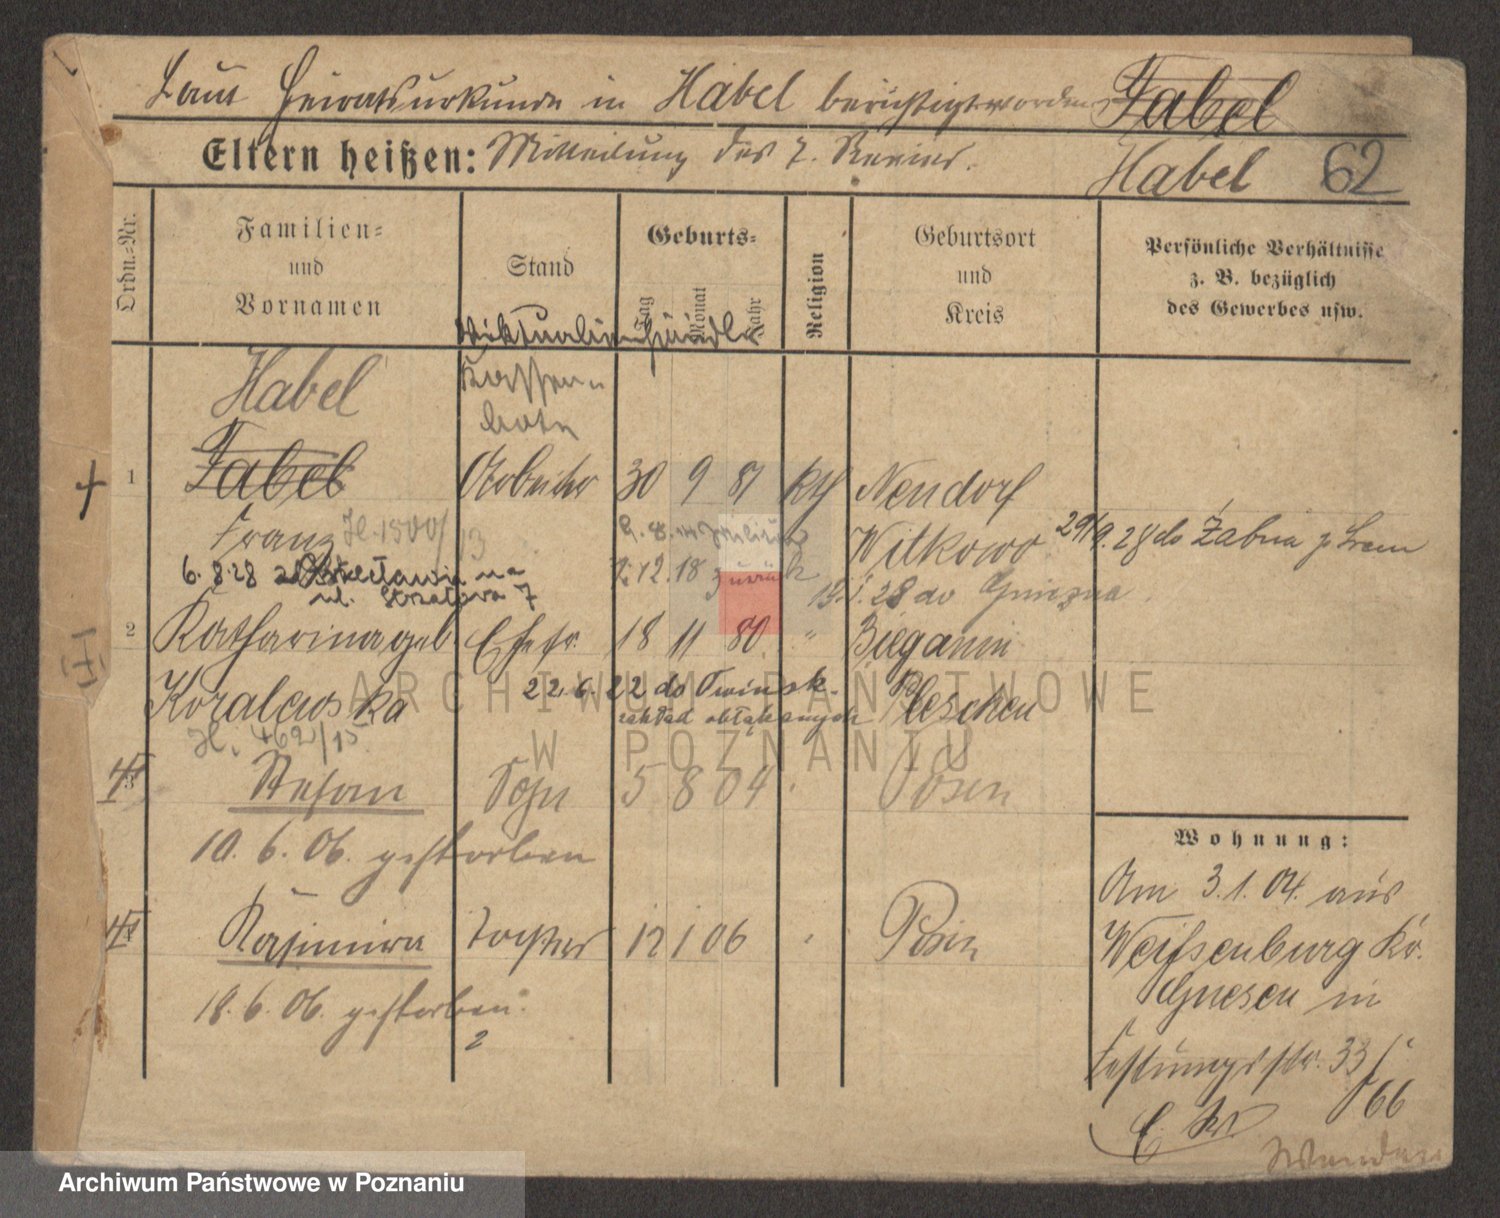 Laut Heiratsurkunde in Habel berichtigt worden Fabel
Eltern heißen: Mitteilung des 7. Revier. Habel 62
Ordn.-Nr.
Familien-
und
Vornamen
Stand
Geburts-
Tag
Monat
Jahr
Religion
Geburtsort
und
Kreis
Persönliche Verhältnisse
z. B. bezüglich
des Gewerbes usw.
Viktualienhändler
Habel Kassen-
bote
1 Fabel Arbeiter 30 9 81 kth Neudorf
Franz H. 1500/13 Witkowo 29/9.28 do Żabna p. Śrem
6. 8 28 na
ul. Strzałowa 7 12.18 zurück 19.1.28 do Gniezna
2 Katharina geb Ehefr. 18 11 80 " Bieganin
Koralewska 22.6.22 do Owinsk. Pleschen
zakład obłąkanych
H. 462/15
3 Stefan Sohn 5 8 04 Posen
10. 6. 06. gestorben
4 Kasimira Tochter 12 1 06 Posen
18. 6. 06. gestorben.
2
Wohnung:
Am 3.1.04. aus
Weißenburg Kr.
Gnesen in
Festungsstr. 33
66
ARCHIWUM PAŃSTWOWE
W POZNANIU
Archiwum Państwowe w Poznaniu